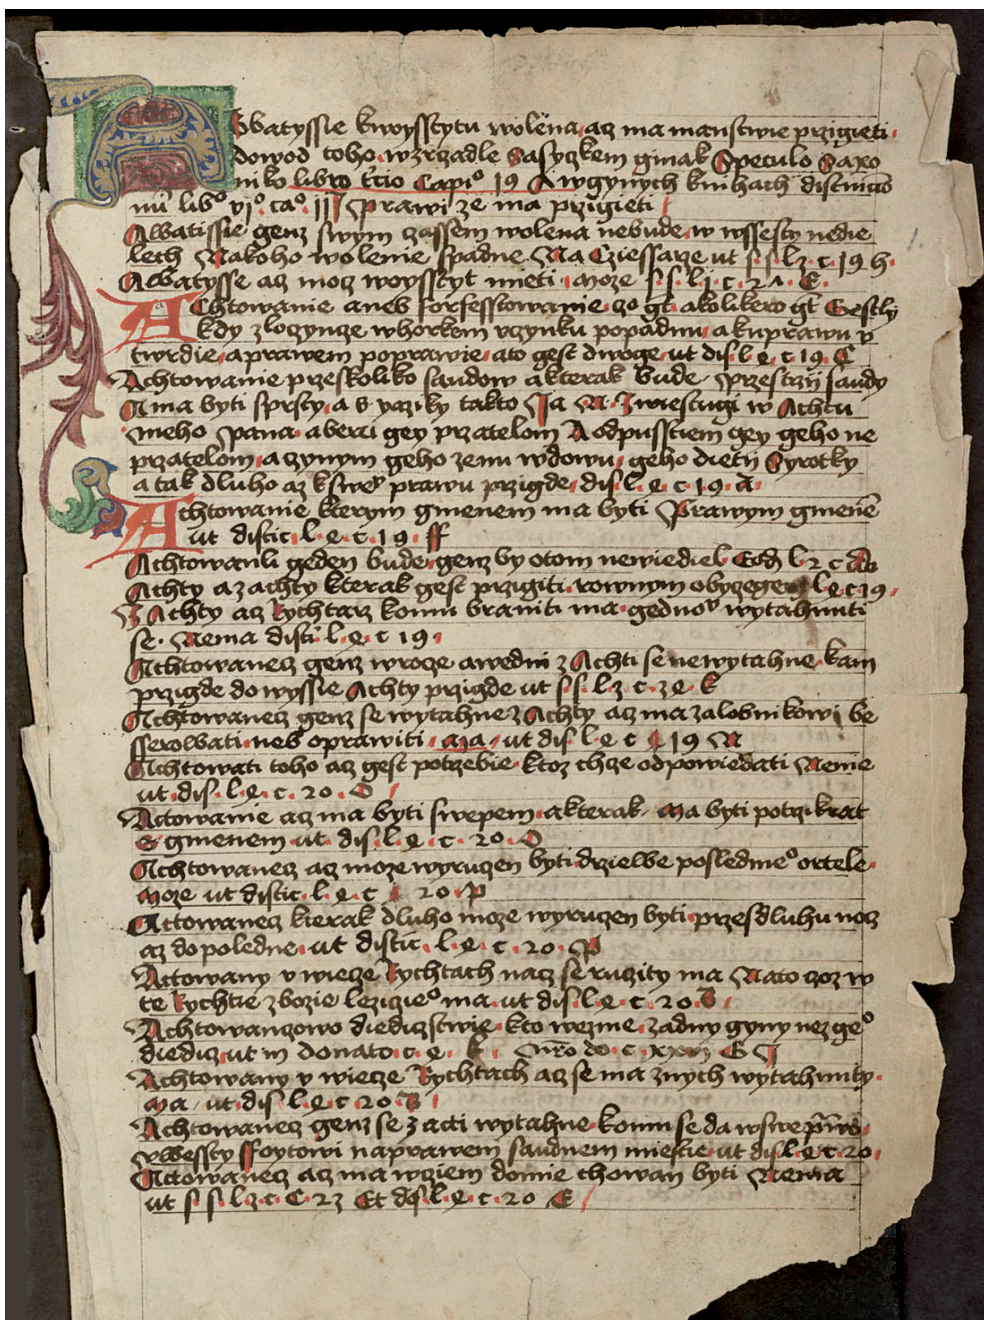 Abatyssie kwoysstytu wolena, acz ma manstwie przigieti
dowod toho wzrzadle Sasyczkem ginak Speculo Saxo
niko libro tercio Capio 19 A wgynych knihach distinigo
nu libo vjo cao II Sprawi ze ma przigieti
Abatissie genz swym czassem wolena nebude, w wssesty nedie
lech Nakoho wolenie spadne Na Cziessarze ut s s l z c 19 h.
Abatysse acz moz woysstyt mieti moze s s l j c 2 A E
Achtowanie aneb forfesstowanie, czo gt akolikero gt Gestly
kdy zloczyncze whorkem vczynku popadnu, a kuprawu v
twrdie, a prawem poprawie, ato gest dwoge, ut dis l e c 19 C
Achtowanie przeskoliko saudow akterak bude, Przestrzij saudy
A ma byti sprsty, a v yaziky takto Ja N Zwiestugi w Achtu
meho pana, aberu gey przatelom A odpusstiem gey geho ne
przatelom, a czynym geho zenu wdowu, geho dietij Syrotky
a tak dluho az kswey prawu przigde, dis l e c 19 A
Achtowanie kterym gmenem ma byti Prawym gmene
ut distic l e c 19 ff
Achtowanli geden bude, genz by otom newiediel Eod l 2 c do
Achty az achty kterak gest przigiti rownym obyczegem l e c 19
Z Achty acz Rychtarz komu braniti ma gednov wytahnuti
se. Nema disti l e c 19
Achtowanecz genz wrocze awedni z Achti se newytahne, kam
przigde do wyssie Achty przigde ut s s l z c z e k
Achtowanecz genz se wytahne z Achty acz ma zalobnikowi be
sserowati neb oprawiti, Ma, ut dis l e c 19 N
Achtowati toho acz gest potrzebie, ktoz chcze odpowiedati Nenie
ut dis l e c 20 O
Actowanie acz ma byti swepem, akterak, Ma byti potrzikrat
E gmenem ut dis l e c 20 O
Achtowanecz acz moze wyruczen byti drziewe posledmeo ortele
Moze ut distic l e c 20 P
Actowanecz kterak dluho moze wyruczen byti, przesdluhu nocz
az do poledne, ut distic l e c 20 P
Actowany v wiecze Rychtach nacz se ruczity ma Nato czoz w
te Rychtie zbozie leziczieo ma, ut dis l e c 20 B
Achtowanczowo diediczstwie, kto wezme, zadny gyny nez geo
diedicz, ut in donato c e k, Nro do c xxxvj G
Achtowany v wiecze Rychtach acz se ma znych wytahnuty
Ma, ut dis l e c 20 B
Achtowanecz genz se z acti wytahne komu se da wswe pmwo
vwessty ffoytowi naprawem saudnem miestie, ut dis l e c 20
Actowanecz acz ma wcziem domie chowan byti Nema
ut s s l z c C 23 Et dis l e c 20 E